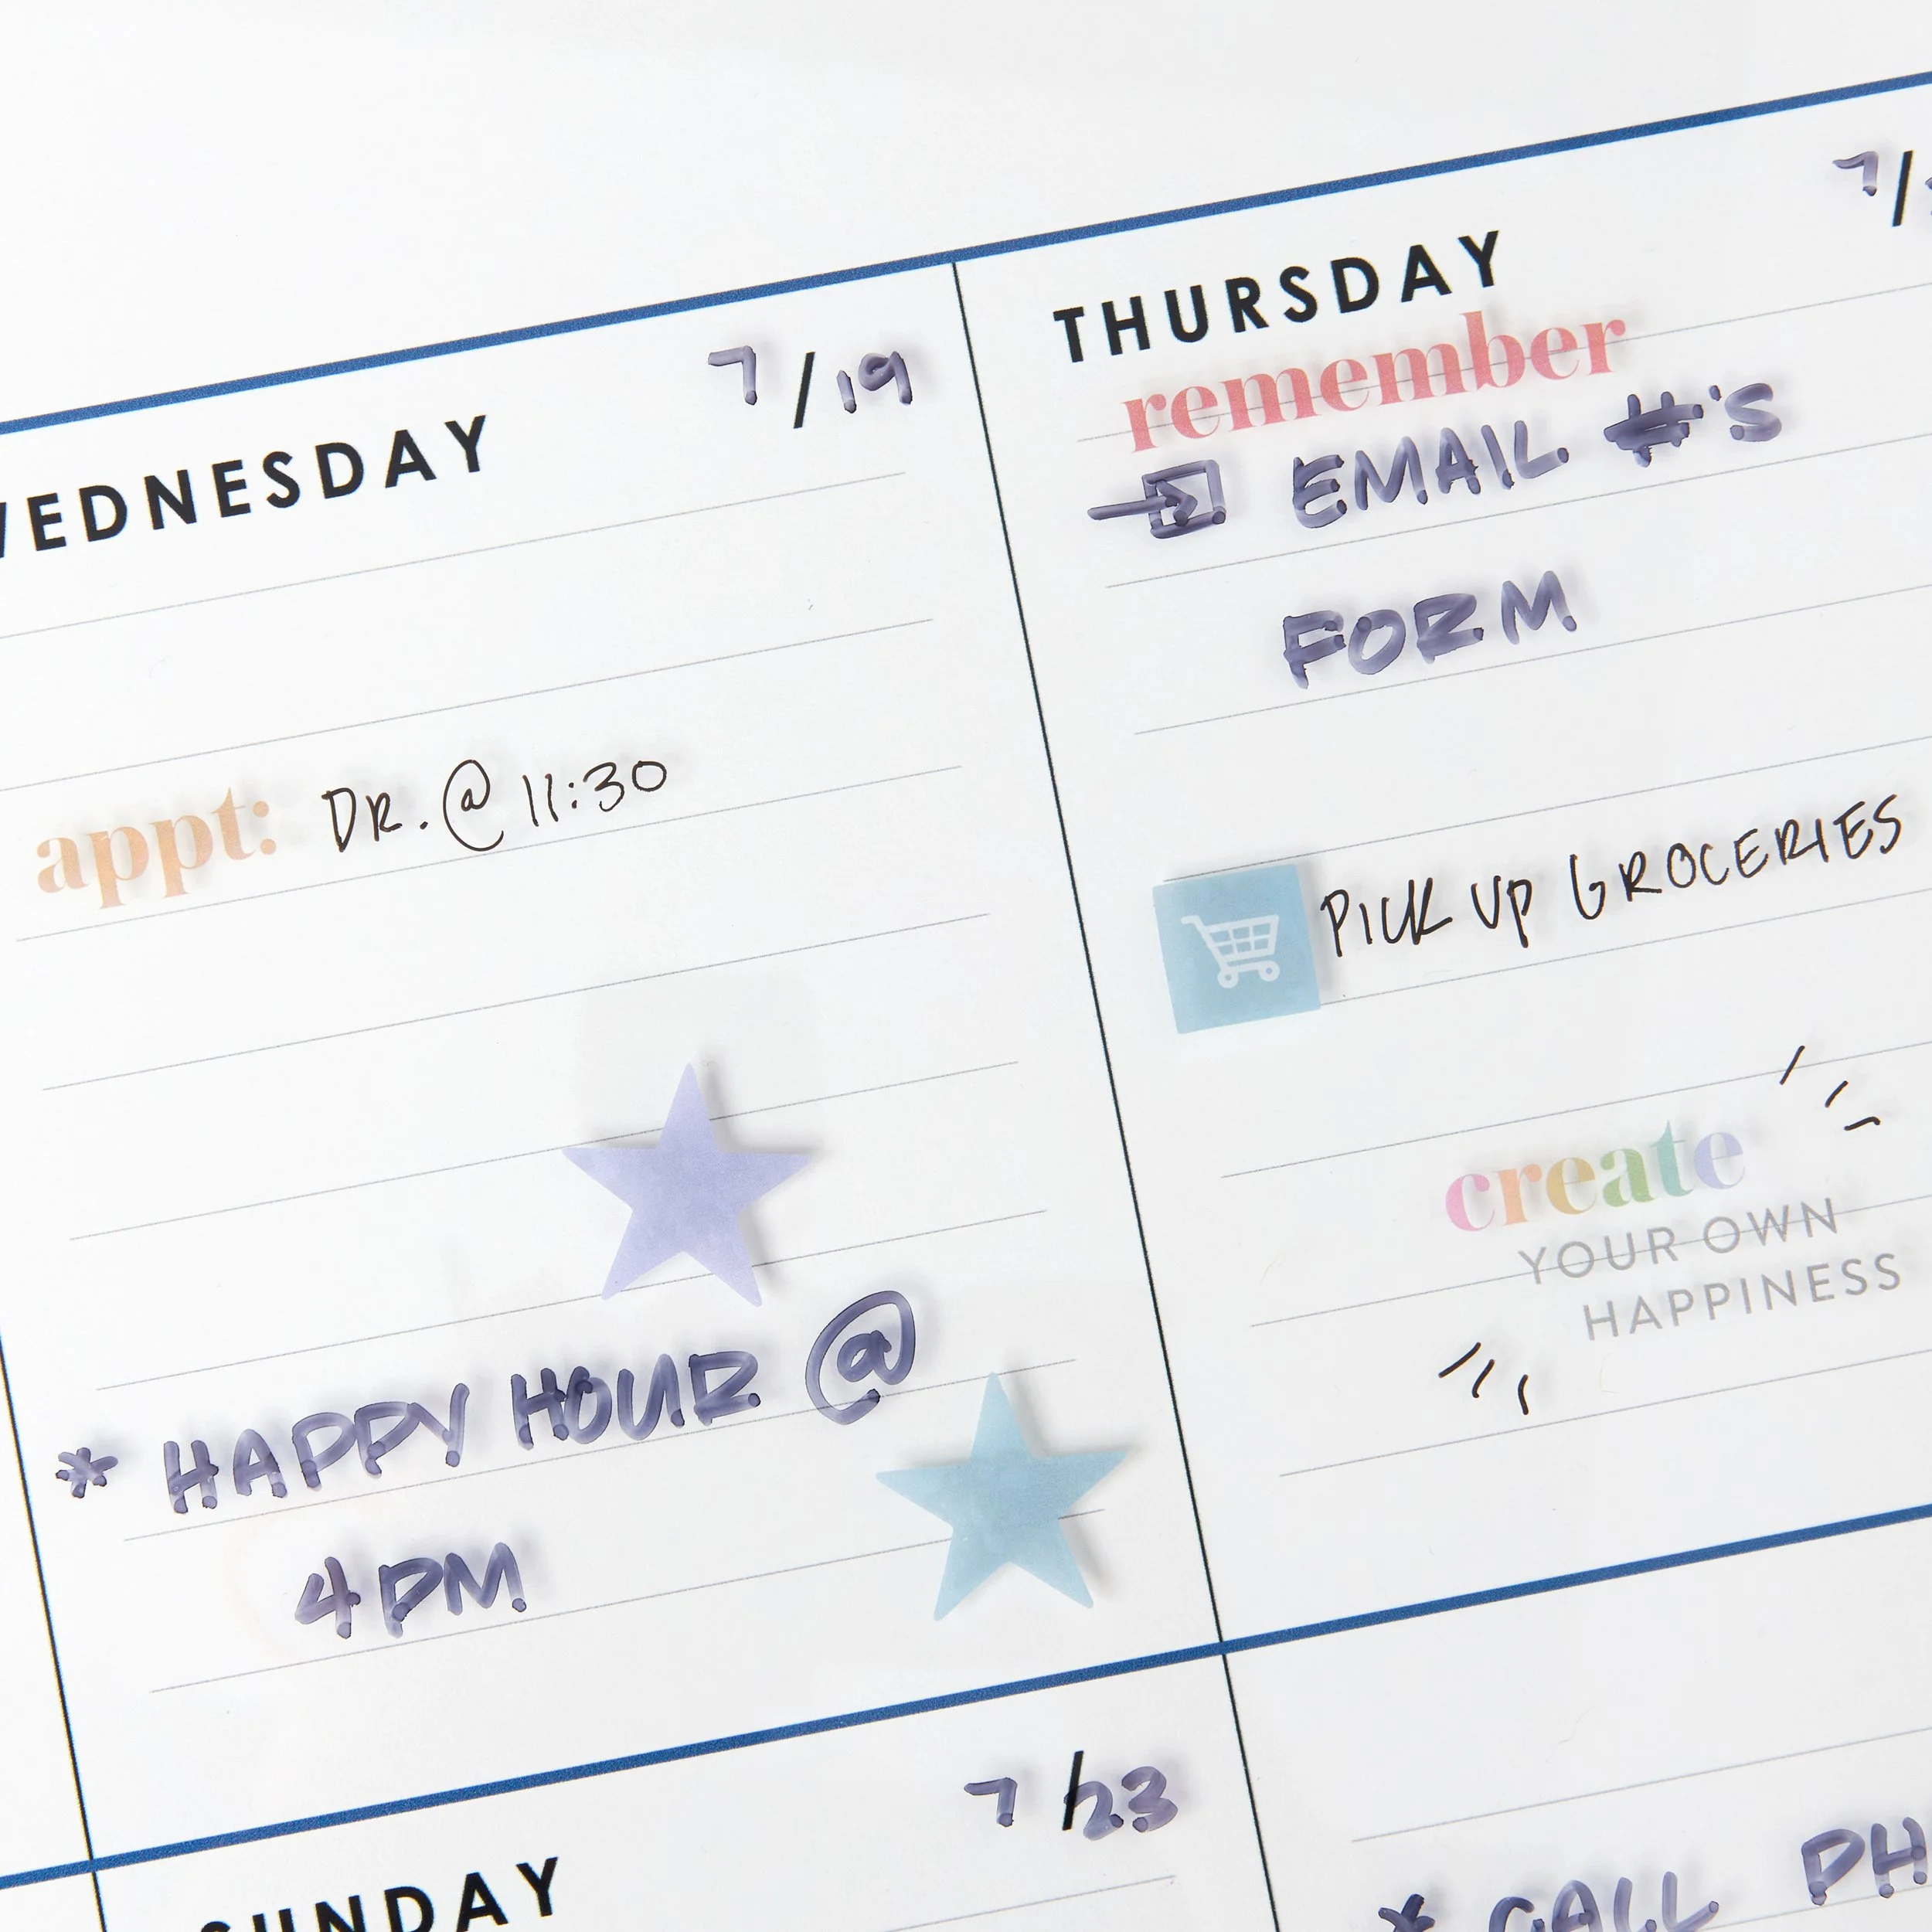 WEDNESDAY 7/19
appt: DR. @ 11:30
* HAPPY HOUR @
4PM
THURSDAY 7/
remember
EMAIL #'S
FORM
PICK UP GROCERIES
create
YOUR OWN
HAPPINESS
SUNDAY 7/23
* CALL PH